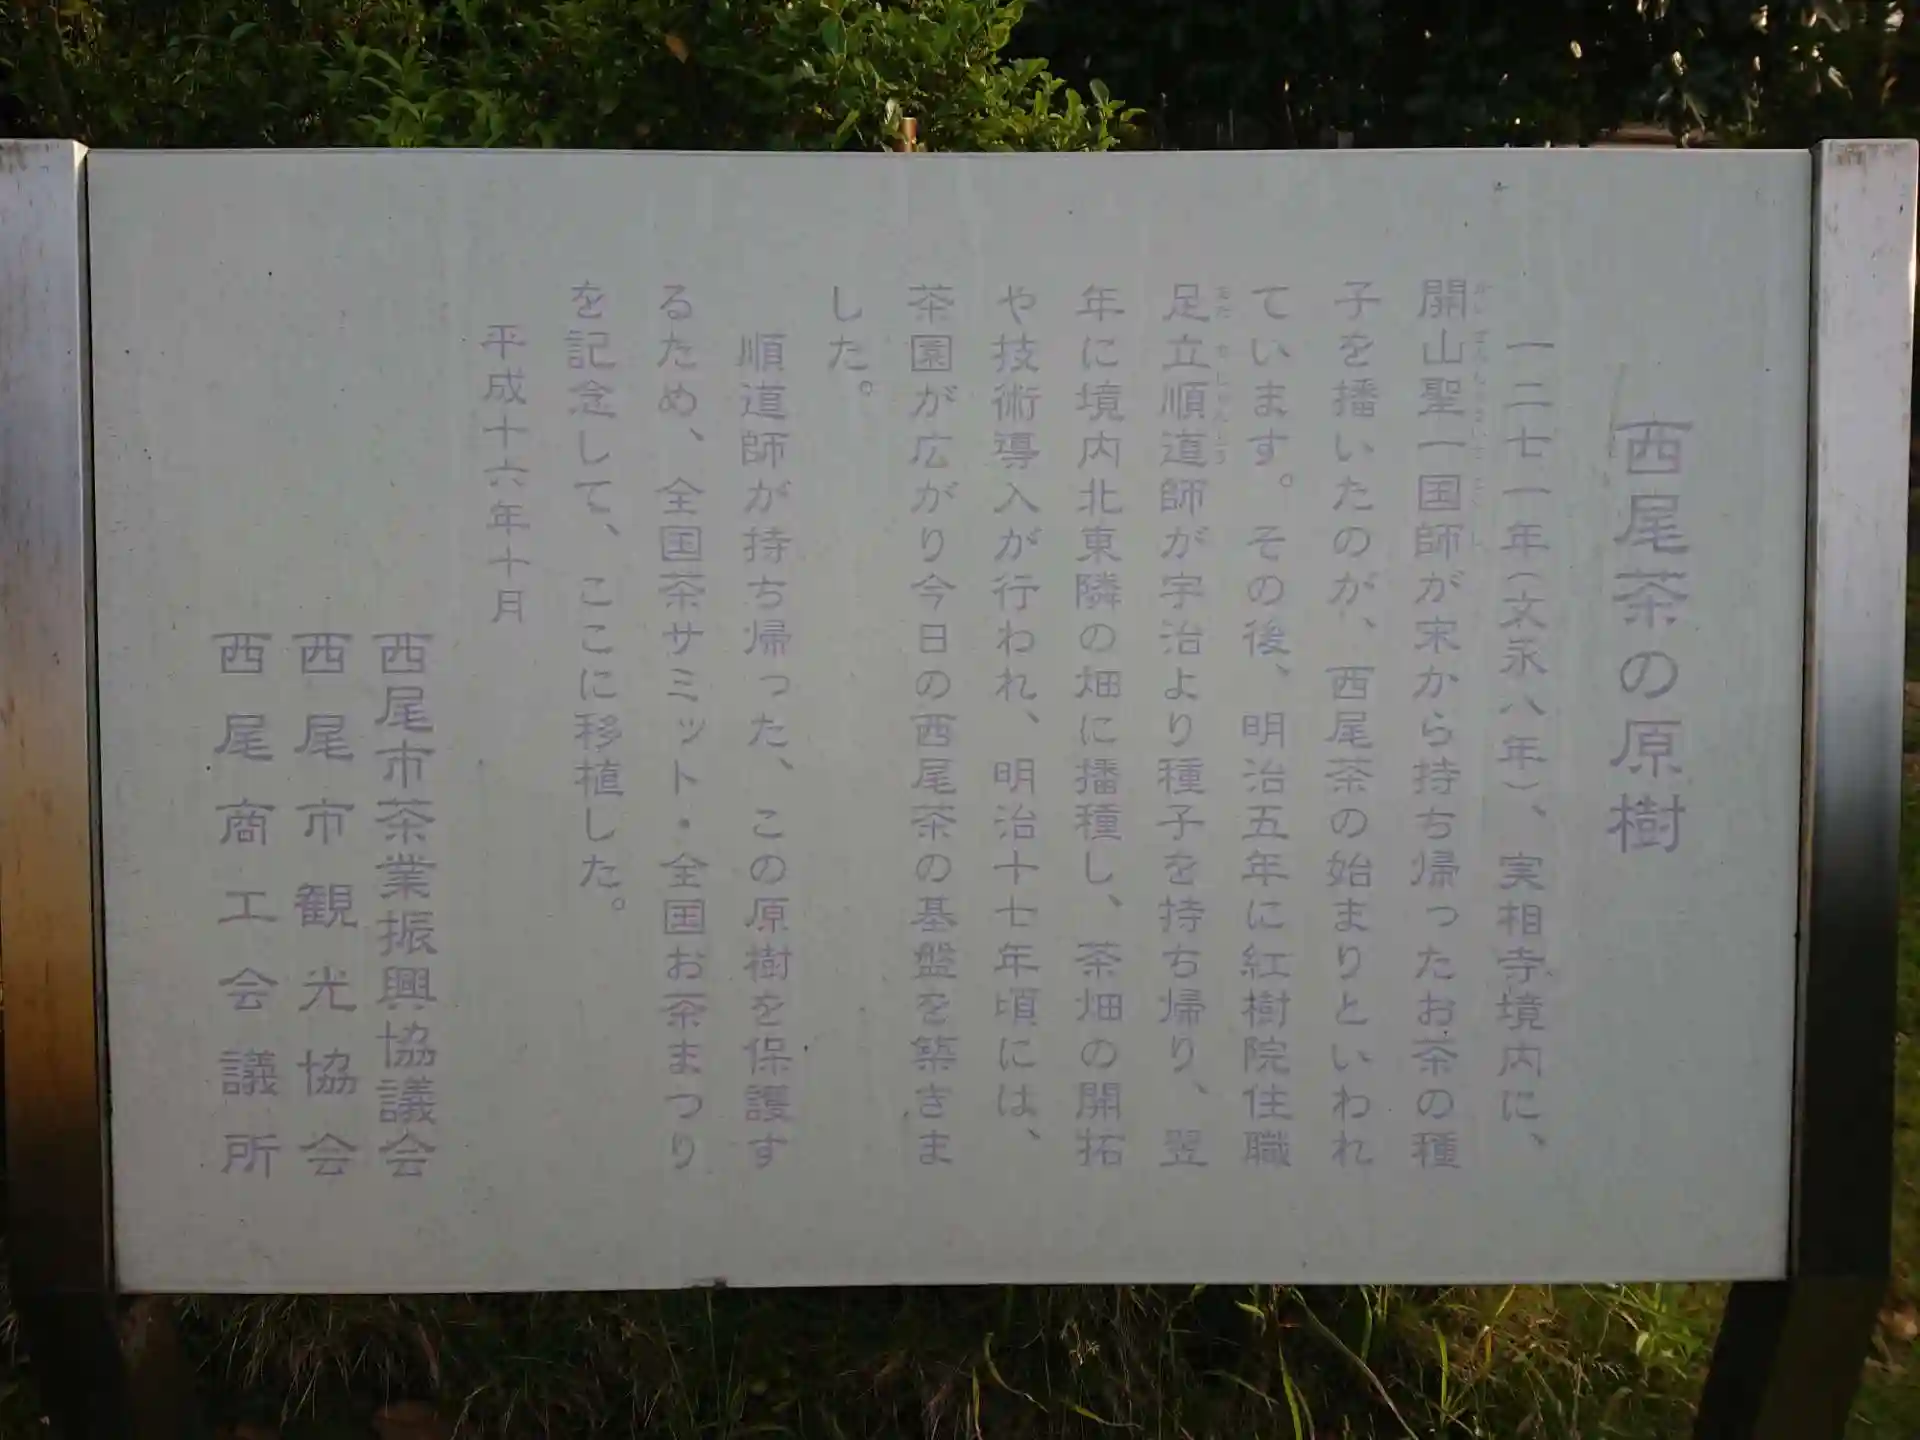 西尾茶の原樹
一二七一年(文永八年)、実相寺境内に、
開山聖一国師が宋から持ち帰ったお茶の種
子を播いたのが、西尾茶の始まりといわれ
ています。その後、明治五年に紅樹院住職
足立順道師が宇治より種子を持ち帰り、翌
年に境内北東隣の畑に播種し、茶畑の開拓
や技術導入が行われ、明治十七年頃には、
茶園が広がり今日の西尾茶の基盤を築きま
した。
順道師が持ち帰った、この原樹を保護す
るため、全国茶サミット・全国お茶まつり
を記念して、ここに移植した。
平成十六年十月
西尾市茶業振興協議会
西尾市観光協会
西尾商工会議所